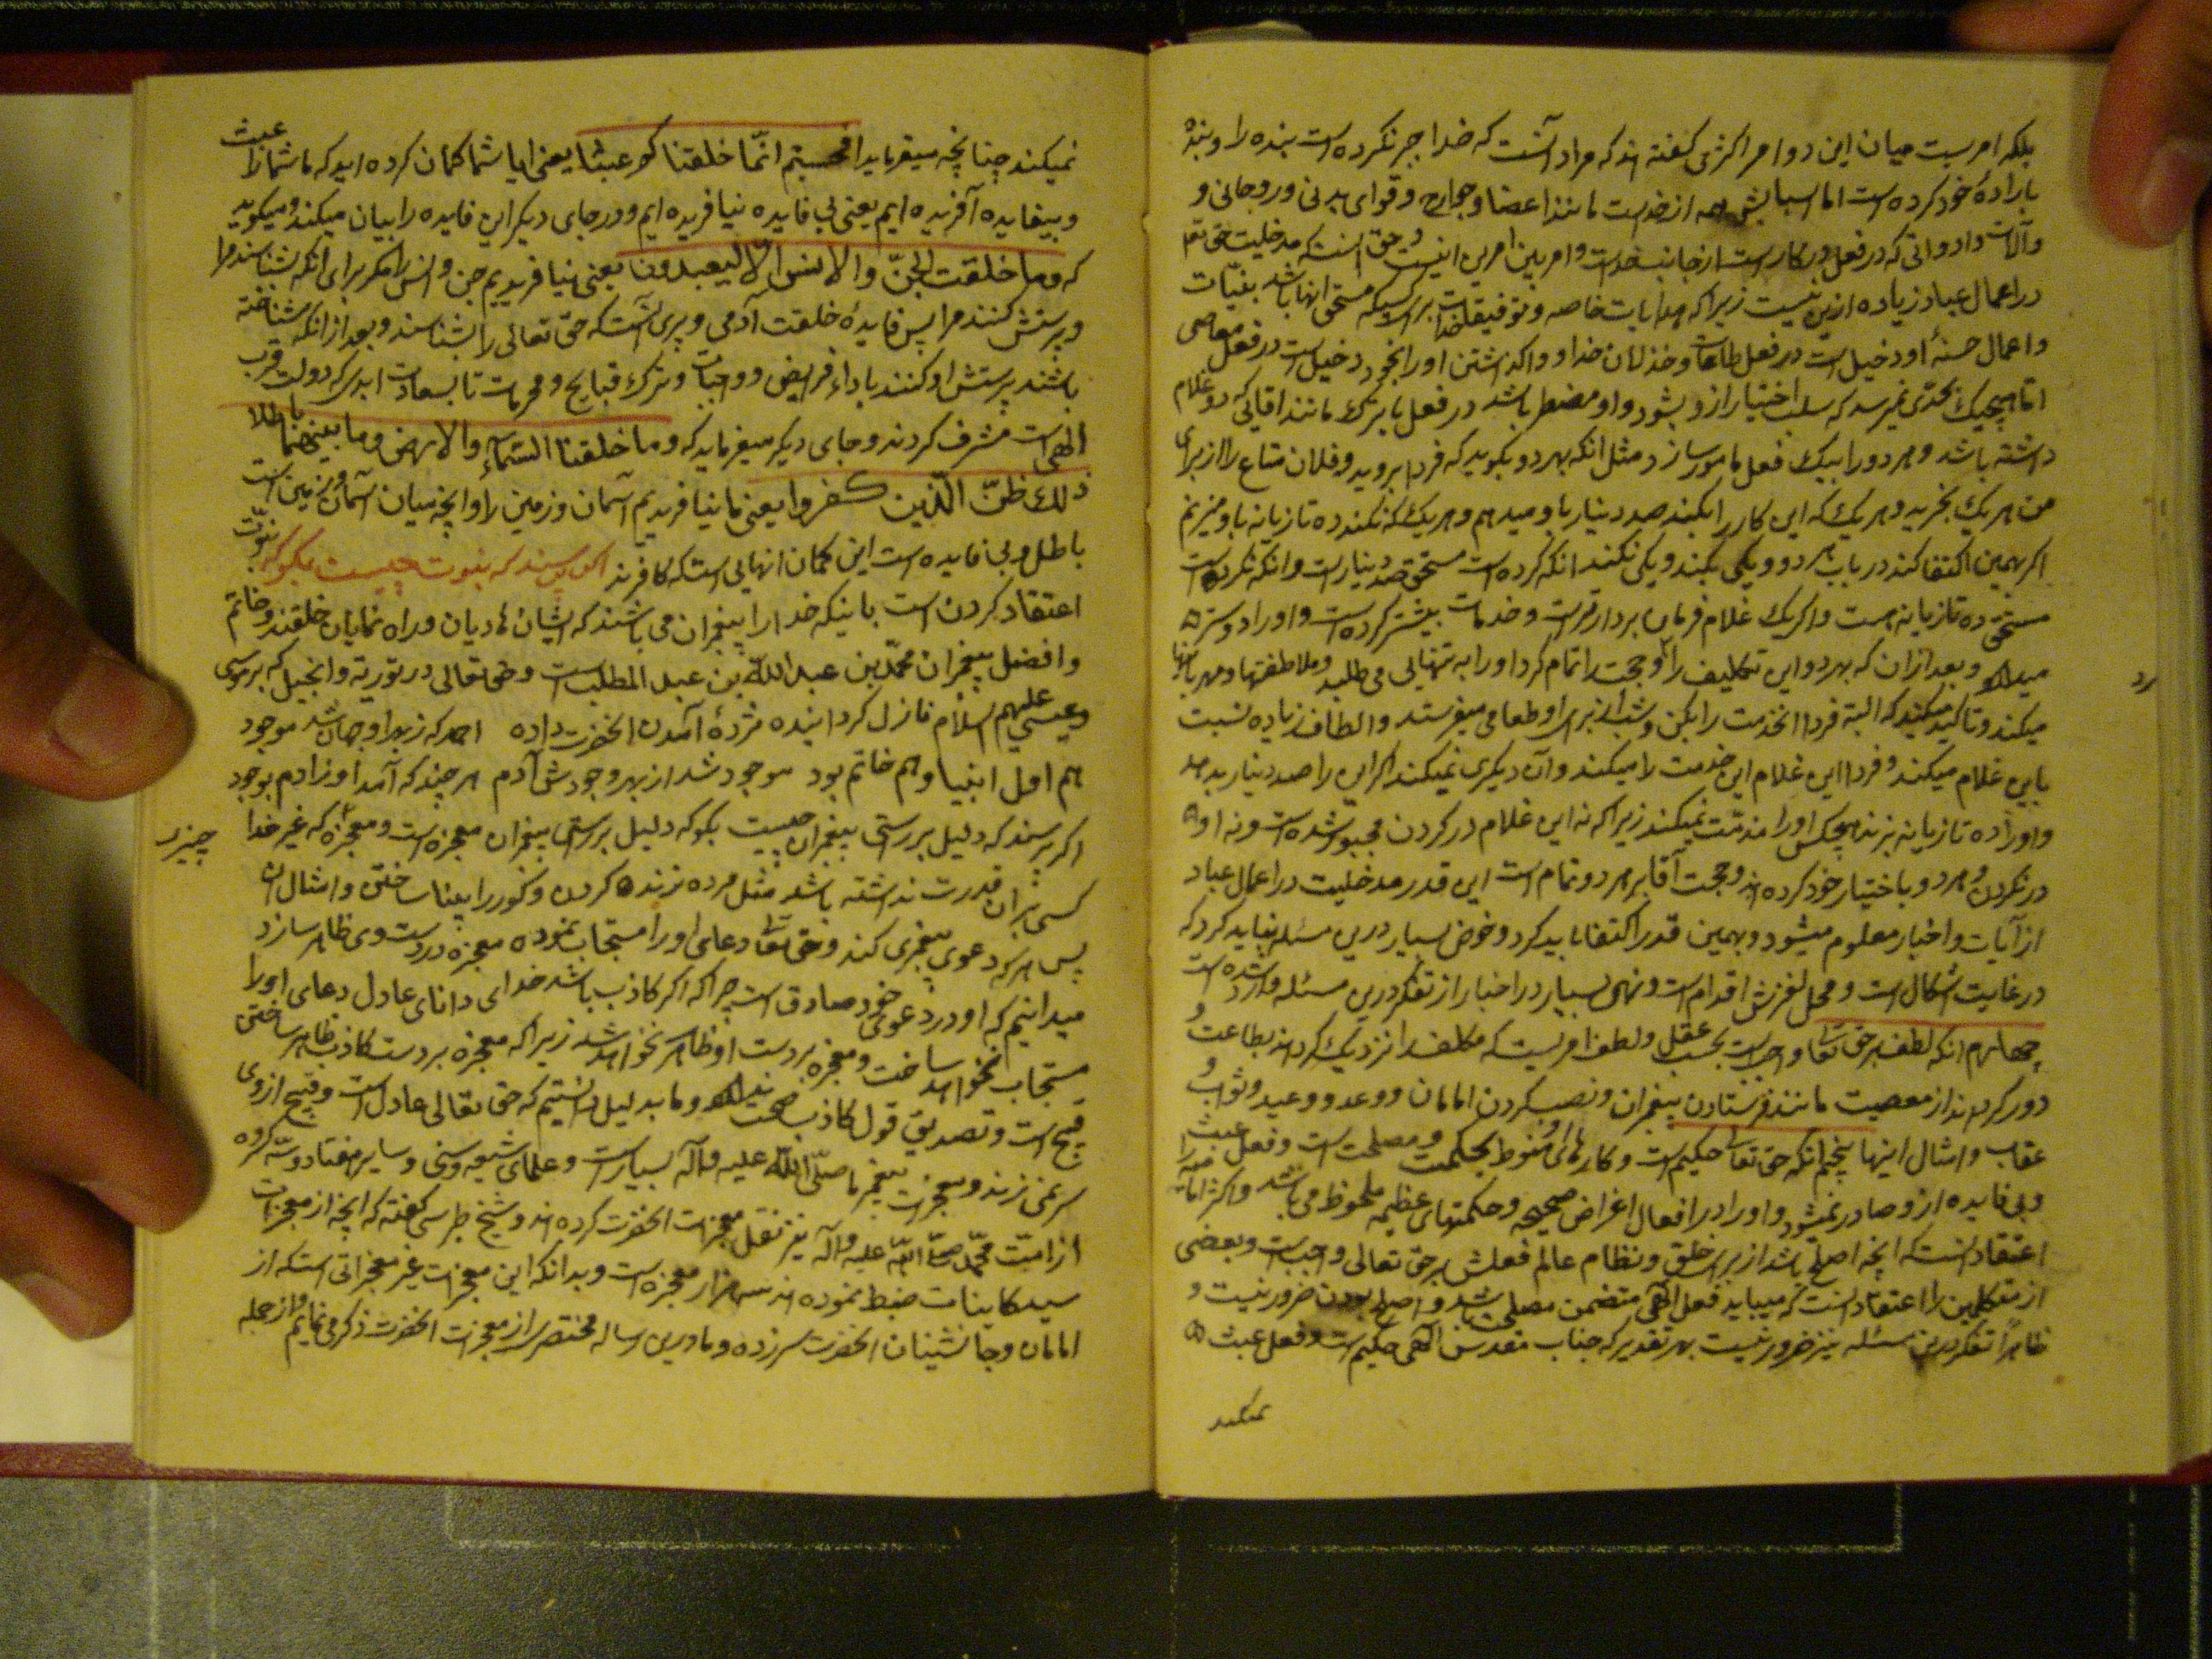 بلکه امریست میان این دو امر اکثری گفته اند که مراد آنست که خدا جبر نکرده است بنده را و بنده
باراده خود کرده است اما اسبابش همه از خداست مانند اعضا و جوارح و قوای بدنی و روحانی و
وآلات و ادواتی که در فعل در کار است از جانب خداست و امر بین امرین اینست و حق آنست که مدخلیت حق تعم
در اعمال عباد زیاده ازین نیست زیرا که هدایات خاصه و توفیقات خدا برای کسیکه مستحق آنها باشد بنیّات
و اعمال حسنهٔ او دخیل است در فعل طاعات و خذلان خدا و واگذاشتن او را بخود دخیل است در فعل معاصی
اما هیچیک بحدّی نمیرسد که سلب اختیار ازو بشود و او مضطر باشد در فعل یا ترک مانند اقائی که دو غلام
داشته باشد و هر دو را بیک فعل مامور سازد مثل انکه بهر دو بکوید که فردا بروید و فلان متاع را از برای
من هر یک بخرید و هر یک که این کار را بکند صد دینار باو میدهم و هر یک که نکند ده تازیانه باو میزنم
اکر بهمین اکتفا کند در باب هر دو و یکی بکند و یکی نکند انکه کرده است مستحق صد دینار است و انکه نکرده است
مستحق ده تازیانه هست و اکر یک غلام فرمان بردار تر است و خدمات بیشتر کرده است و او را دوستر
میدارد و بعد ازان که بهر دو این تکلیف را و حجت را تمام کرد او را به تنهائی می طلبد و ملاطفتها و مهربانیها
میکند و تاکید میکند که البته فردا انخدمت را بکن و شب از برای او طعامی میفرستد و الطاف زیاده نسبت
باین غلام میکند و فردا این غلام این خدمت را میکند و آن دیکری نمیکند اکر این را صد دینار بدهد
و او را ده تازیانه بزند هیچکس او را مذمّت نمیکند زیرا که نه این غلام در کردن مجبور شده است و نه او
در نکردن و هر دو باختیار خود کرده اند و حجت آقا بر هر دو تمام است این قدر مدخلیت در اعمال عباد
از آیات و اخبار معلوم میشود و بهمین قدر اکتفا باید کرد و خوض بسیار درین مسئله نباید کرد که
در غایت اشکال است و محل لغزش اقدام است و نهی بسیار در اخبار از تفکر درین مسئله وارد شده است
چهارم انکه لطف بر حق تعا واجب است بحسب عقل و لطف امریست که مکلف را نزدیک کرداند بطاعت و
دور کرداند از معصیت مانند فرستادن پیغمبران و نصب کردن امامان و وعد و وعید و ثواب و
عقاب و امثال اینها پنجم انکه حق تعا حکیم است و کارهای او منوط بحکمت و مصلحت است و فعل عبث
و بی فایده ازو صادر نمیشود و او را در افعال اغراض صحیحه و حکمتهای عظیمه ملحوظ می باشد و اکثر امامیه را
اعتقاد انست که انچه اصلح باشد از برای خلق و نظام عالم فعلش بر حق تعالی واجب است و بعضی
از متکلمین را اعتقاد انست که میباید فعل الهی متضمن مصلحت باشد و اصلح بودن ضرور نیست و
ظاهراً تفکر درین مسئله نیز ضرور نیست بهر تقدیر که جناب مقدس الهی حکیم است و فعل عبث
نمیکند
نمیکند چنانچه میفرماید افحسبتم انّما خلقناکم عبثا یعنی ایا شما کمان کرده اید که ما شما را عبث
و بیفایده آفریده ایم یعنی بی فایده نیافریده ایم و در جای دیکر این فایده را بیان میکند و میکوید
که وما خلقت الجنّ والانس الّا لیعبدون یعنی نیافریدیم جن و انس را مکر برای انکه بشناسند مرا
و پرستش کنند مرا پس فایدهٔ خلقت آدمی و پری آنست که حق تعالی را بشناسند و بعد از انکه شناخته
باشند پرستش او کنند باداء فرایض و واجبات و ترک قبایح و محرمات تا بسعادت ابدی که دولت قرب
الهی است مشرف کردند و جای دیکر میفرماید که وما خلقنا السّماء والارض وما بینهما باطلا
ذلک ظنّ الّذین کفروا یعنی ما نیافریدیم آسمان و زمین را و انچه میان آسمان و زمین است
باطل و بی فایده است این کمان انهائی است که کافرند اکر پرسند که نبوت چیست بکو که نبوّت
اعتقاد کردن است باینکه خدا را پیغمبران می باشند که ایشان هادیان و راه نمایان خلقند و خاتم
و افضل پیغمبران محمّد بن عبد اللّه بن عبد المطلب است و حق تعالی در توریة و انجیل که بر موسی
و عیسی علیهم السلام نازل کردانیده مژدهٔ آمدن انحضرت داده احمد که زبهر او جهان شد موجود
هم اول انبیا و هم خاتم بود موجود شد از بهر وجودش آدم هر چند که آمد او ز ادم بوجود
اکر پرسند که دلیل بر راستی پیغمبران چیست بکو که دلیل بر راستی پیغمبران معجزه است و معجزه چیزیست که غیر خدا
کسی بران قدرت نداشته باشد مثل مرده زنده کردن و کور را بینا ساختن و امثال ان
پس هر که دعوی پیغمبری کند و حق تعا دعای او را مستجاب نموده معجزه در دست وی ظاهر سازد
میدانیم که او در دعوی خود صادق است چرا که اکر کاذب باشد خدای دانای عادل دعای او را
مستجاب نخواهد ساخت و معجزه بر دست او ظاهر نخواهد شد زیرا که معجزه بر دست کاذب ظاهر ساختن
قبیح است و تصدیق قول کاذب صحت ندارد و ما بدلیل دانستیم که حق تعالی عادل است و قبیح ازوی
سر نمی زند و معجزات پیغمبر ما صلّی اللّه علیه و آله بسیار است و علمای شیعه و سنی و سایر هفتاد و سه کروه
از امّت محمّد صلّی اللّه علیه و آله نیز نقل معجزات انحضرت کرده اند و شیخ طبرسی کفته که انچه از معجزات
سید کاینات ضبط نموده اند سه هزار معجزه است و بدانکه این معجزات غیر معجزاتی است که از
امامان و جانشینان انحضرت سرزده و ما درین رساله مختصر از معجزات انحضرت ذکر می نمایم و از جمله